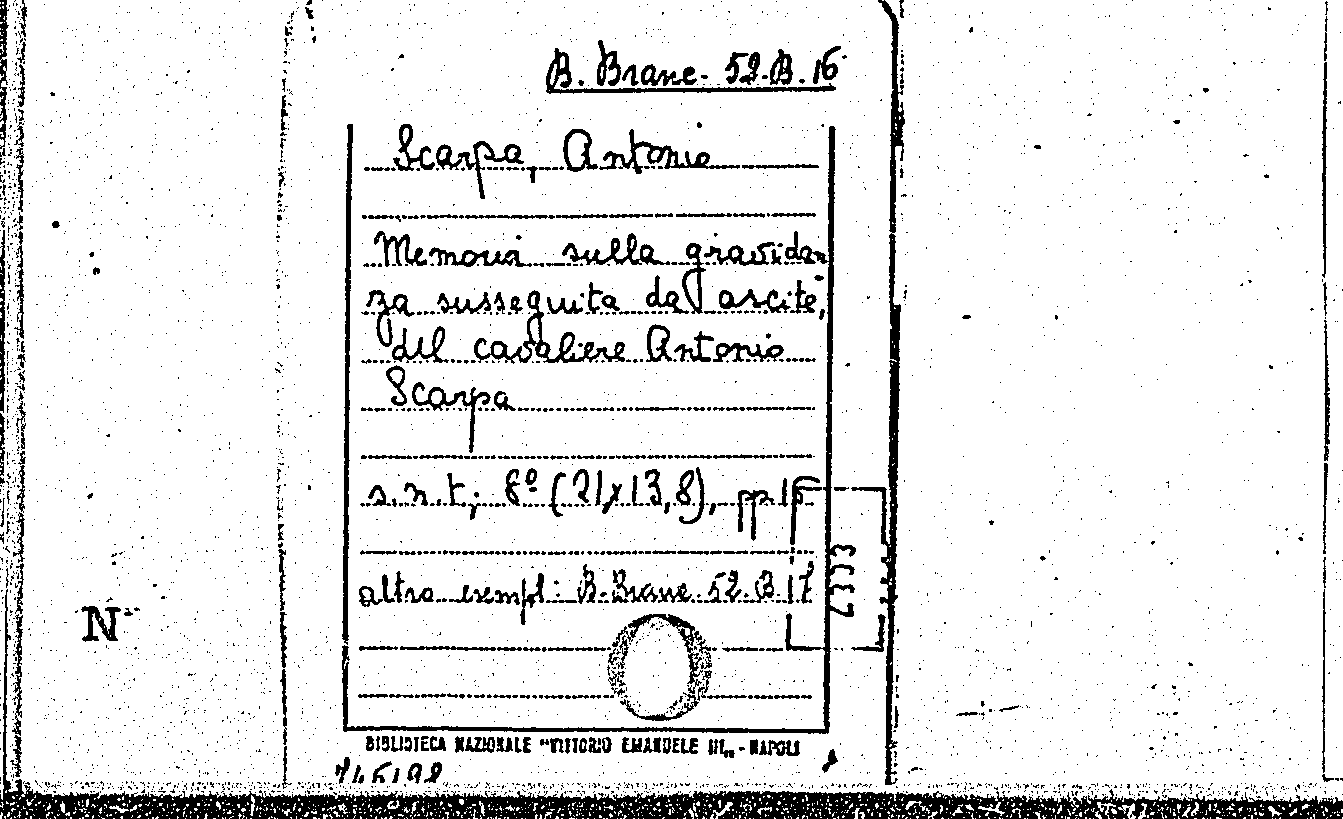 B. Branc. 52.B.16
Scarpa, Antonio
Memoria sulla gravidan
za susseguita da ascite,
del cavaliere Antonio
Scarpa
s.n.t; 8º (21x13,8), pp 15
altro esempl: B. Branc. 52.B.17
N
BIBLIOTECA NAZIONALE "VITTORIO EMANUELE III„ - NAPOLI